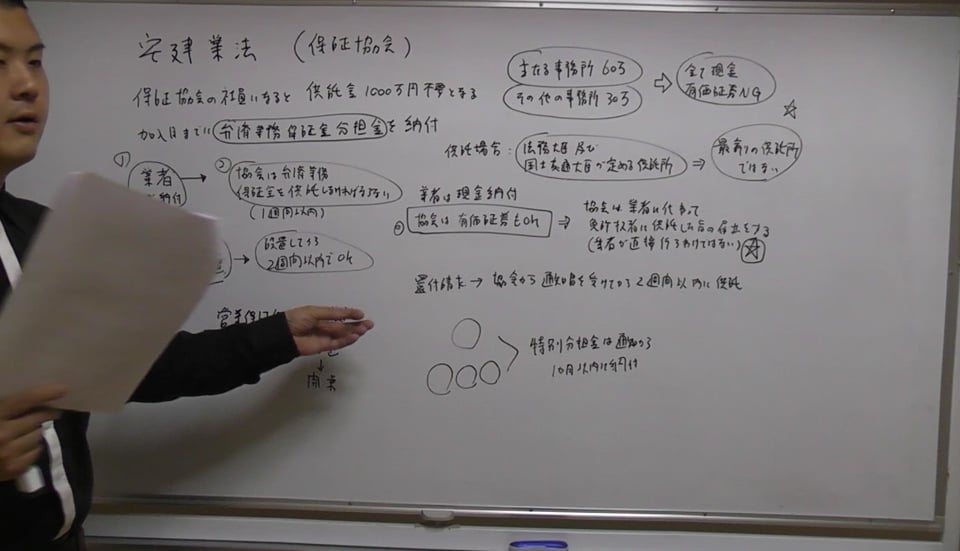 宅建業法 (保証協会)
保証協会の社員になると 供託金1000万円不要となる
加入日までに弁済業務保証金分担金を納付
主たる事務所 60万
その他の事務所 30万
⇨ 全て現金
有価証券NG
☆
供託場合:法務大臣及び
国土交通大臣が定める供託所
⇒ 最寄りの供託所
ではない
① 業者
納付
→ ② 協会は弁済業務
保証金を供託しなければならない
(1週間以内)
→ 設置してから
2週間以内でOK
営業保証
↓
業者は現金納付
◎ 協会は有価証券もOK
⇒ 協会は業者に代わって
免許权者に供託した旨の届出をする
(業者が直接行うわけではない) ☆
還付請求→協会から通知書を受けてから2週間以内に供託
特別分担金は通知から
1ヶ月以内に納付